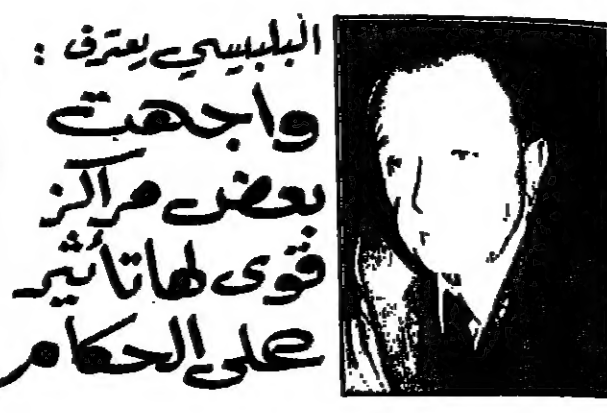 البلبيسي يعترف :
واجهت
بعض مراكز
قوى لها تأثير
على الحكام